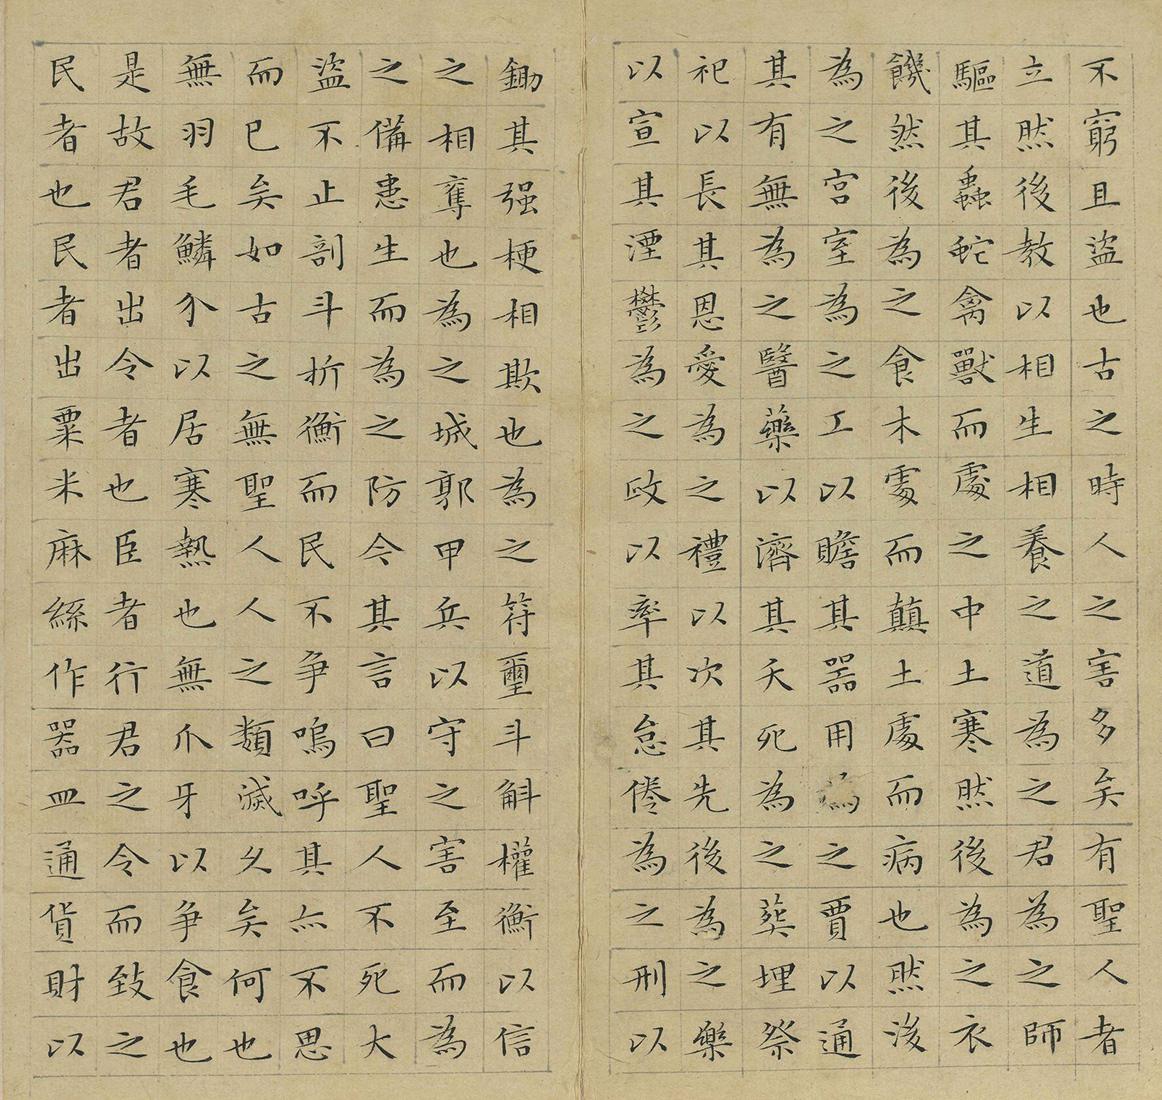 不窮且盜也古之時人之害多矣有聖人者
立然後教以相生相養之道為之君為之師
驅其蟲蛇禽獸而處之中土寒然後為之衣
饑然後為之食木處而顛土處而病也然後
為之宮室為之工以贍其器用為之賈以通
其有無為之醫藥以濟其夭死為之葬埋祭
祀以長其恩愛為之禮以次其先後為之樂
以宣其湮鬱為之政以率其怠倦為之刑以
鋤其强梗相欺也為之符璽斗斛權衡以信
之相奪也為之城郭甲兵以守之害至而為
之備患生而為之防今其言曰聖人不死大
盜不止剖斗折衡而民不争嗚呼其亦不思
而已矣如古之無聖人人之類滅久矣何也
無羽毛鱗介以居寒熱也無爪牙以争食也
是故君者出令者也臣者行君之令而致之
民者也民者出粟米麻絲作器皿通貨財以